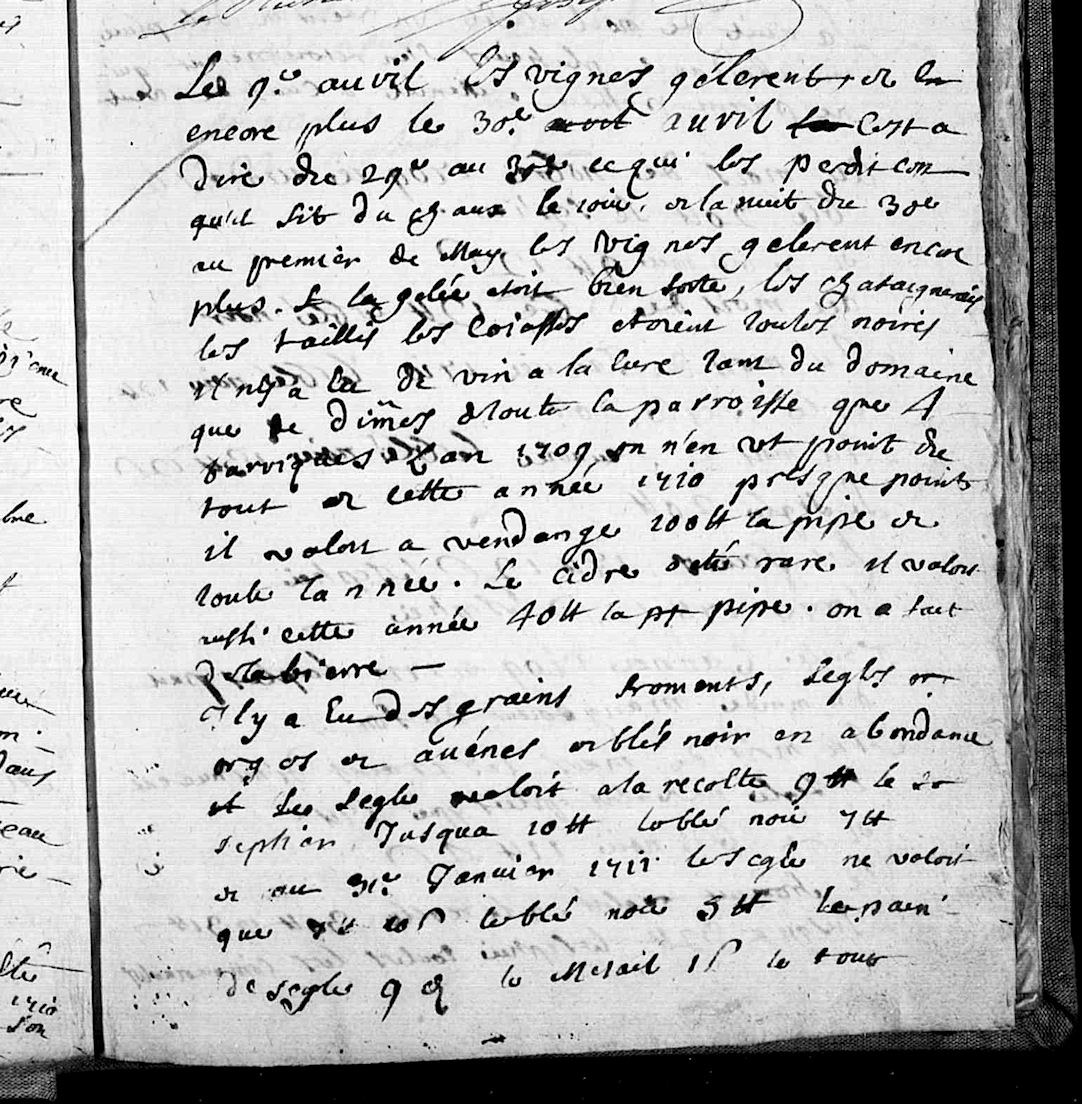 Le 9e auvil les vignes gélerent, et en
encore plus le 30e avril auvril Cest a
Dire du 29e au 30e ce qui les perdit con
qu'il fit du chaux le soir, et la nuit du 30e
au premier de May les vignes gelerent encor
plus. Et la gelée etoit bien forte, les chataigneries
les taillis les Coiasses etoient toutes noires
il n'y a Eu de vin a la Cure tant du domaine
que de Dimes et toute la parroisse que 4
barriques L'an 1709 on n'en ut point du
tout et cette année 1710 presque point
il valoit a vendange 100 tt la pipe et
toute l'année. Le Cidre a été rare il valoit
aussi cette année 40 tt la pipe. on a fait
de la bierre —
Il y a Eu des grains froments, segles or
orges et avénes et blés noir en abondance
et Le segle valoit a la recolte 9 tt le
septier Jusqua 10 tt le blé noir 7 tt
et au 31e Janvier 1711 le segle ne valoit
que 10 s le blé noir 5 tt le pain
de segle 9 d le Metail 1 s le tout